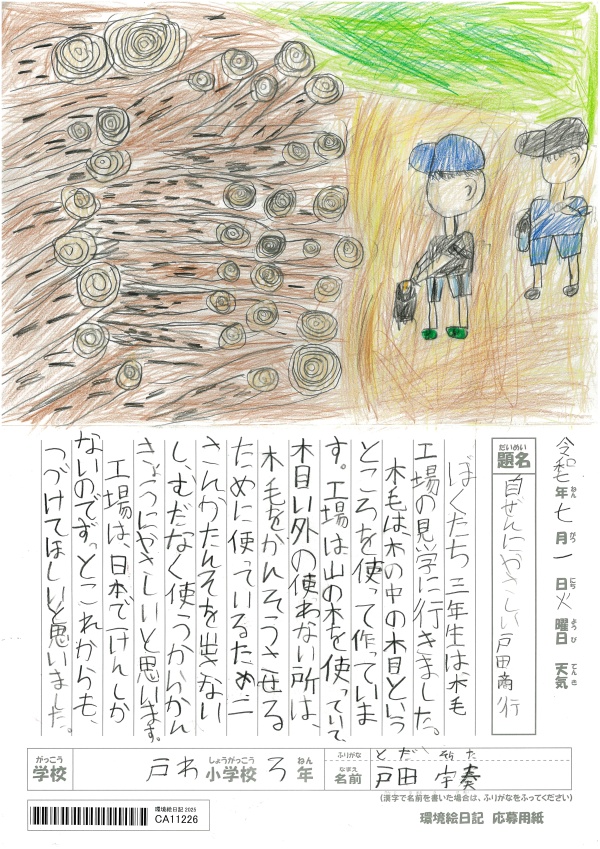 令和七年七月一日火曜日 天気
ねん がつ にち ようび てんき
だいめい
題名
自ぜんにやさしい戸田商行
ぼくたち三年生は、木毛
工場の見学に行きました。
木毛は木の中の木目という
ところを使って作っていま
す。工場は山の木を使っていて、
木目い外の使わない所は、
木毛をかんそうさせる
ために使っているため二
さんかたんそを出さない
し、むだなく使うからかん
きょうにやさしいと思います。
工場は、日本で一けんしか
ないのでずっとこれからも、
つづけてほしいと思いました。
がっこう しょうがっこう ねん
学校 戸わ 小学校 3 年
ふりがな とだ
なまえ
名前 戸田 宇奏
(漢字で名前を書いた場合は、ふりがなをふってください)
環境絵日記 2025
CA11226
環境絵日記 応募用紙